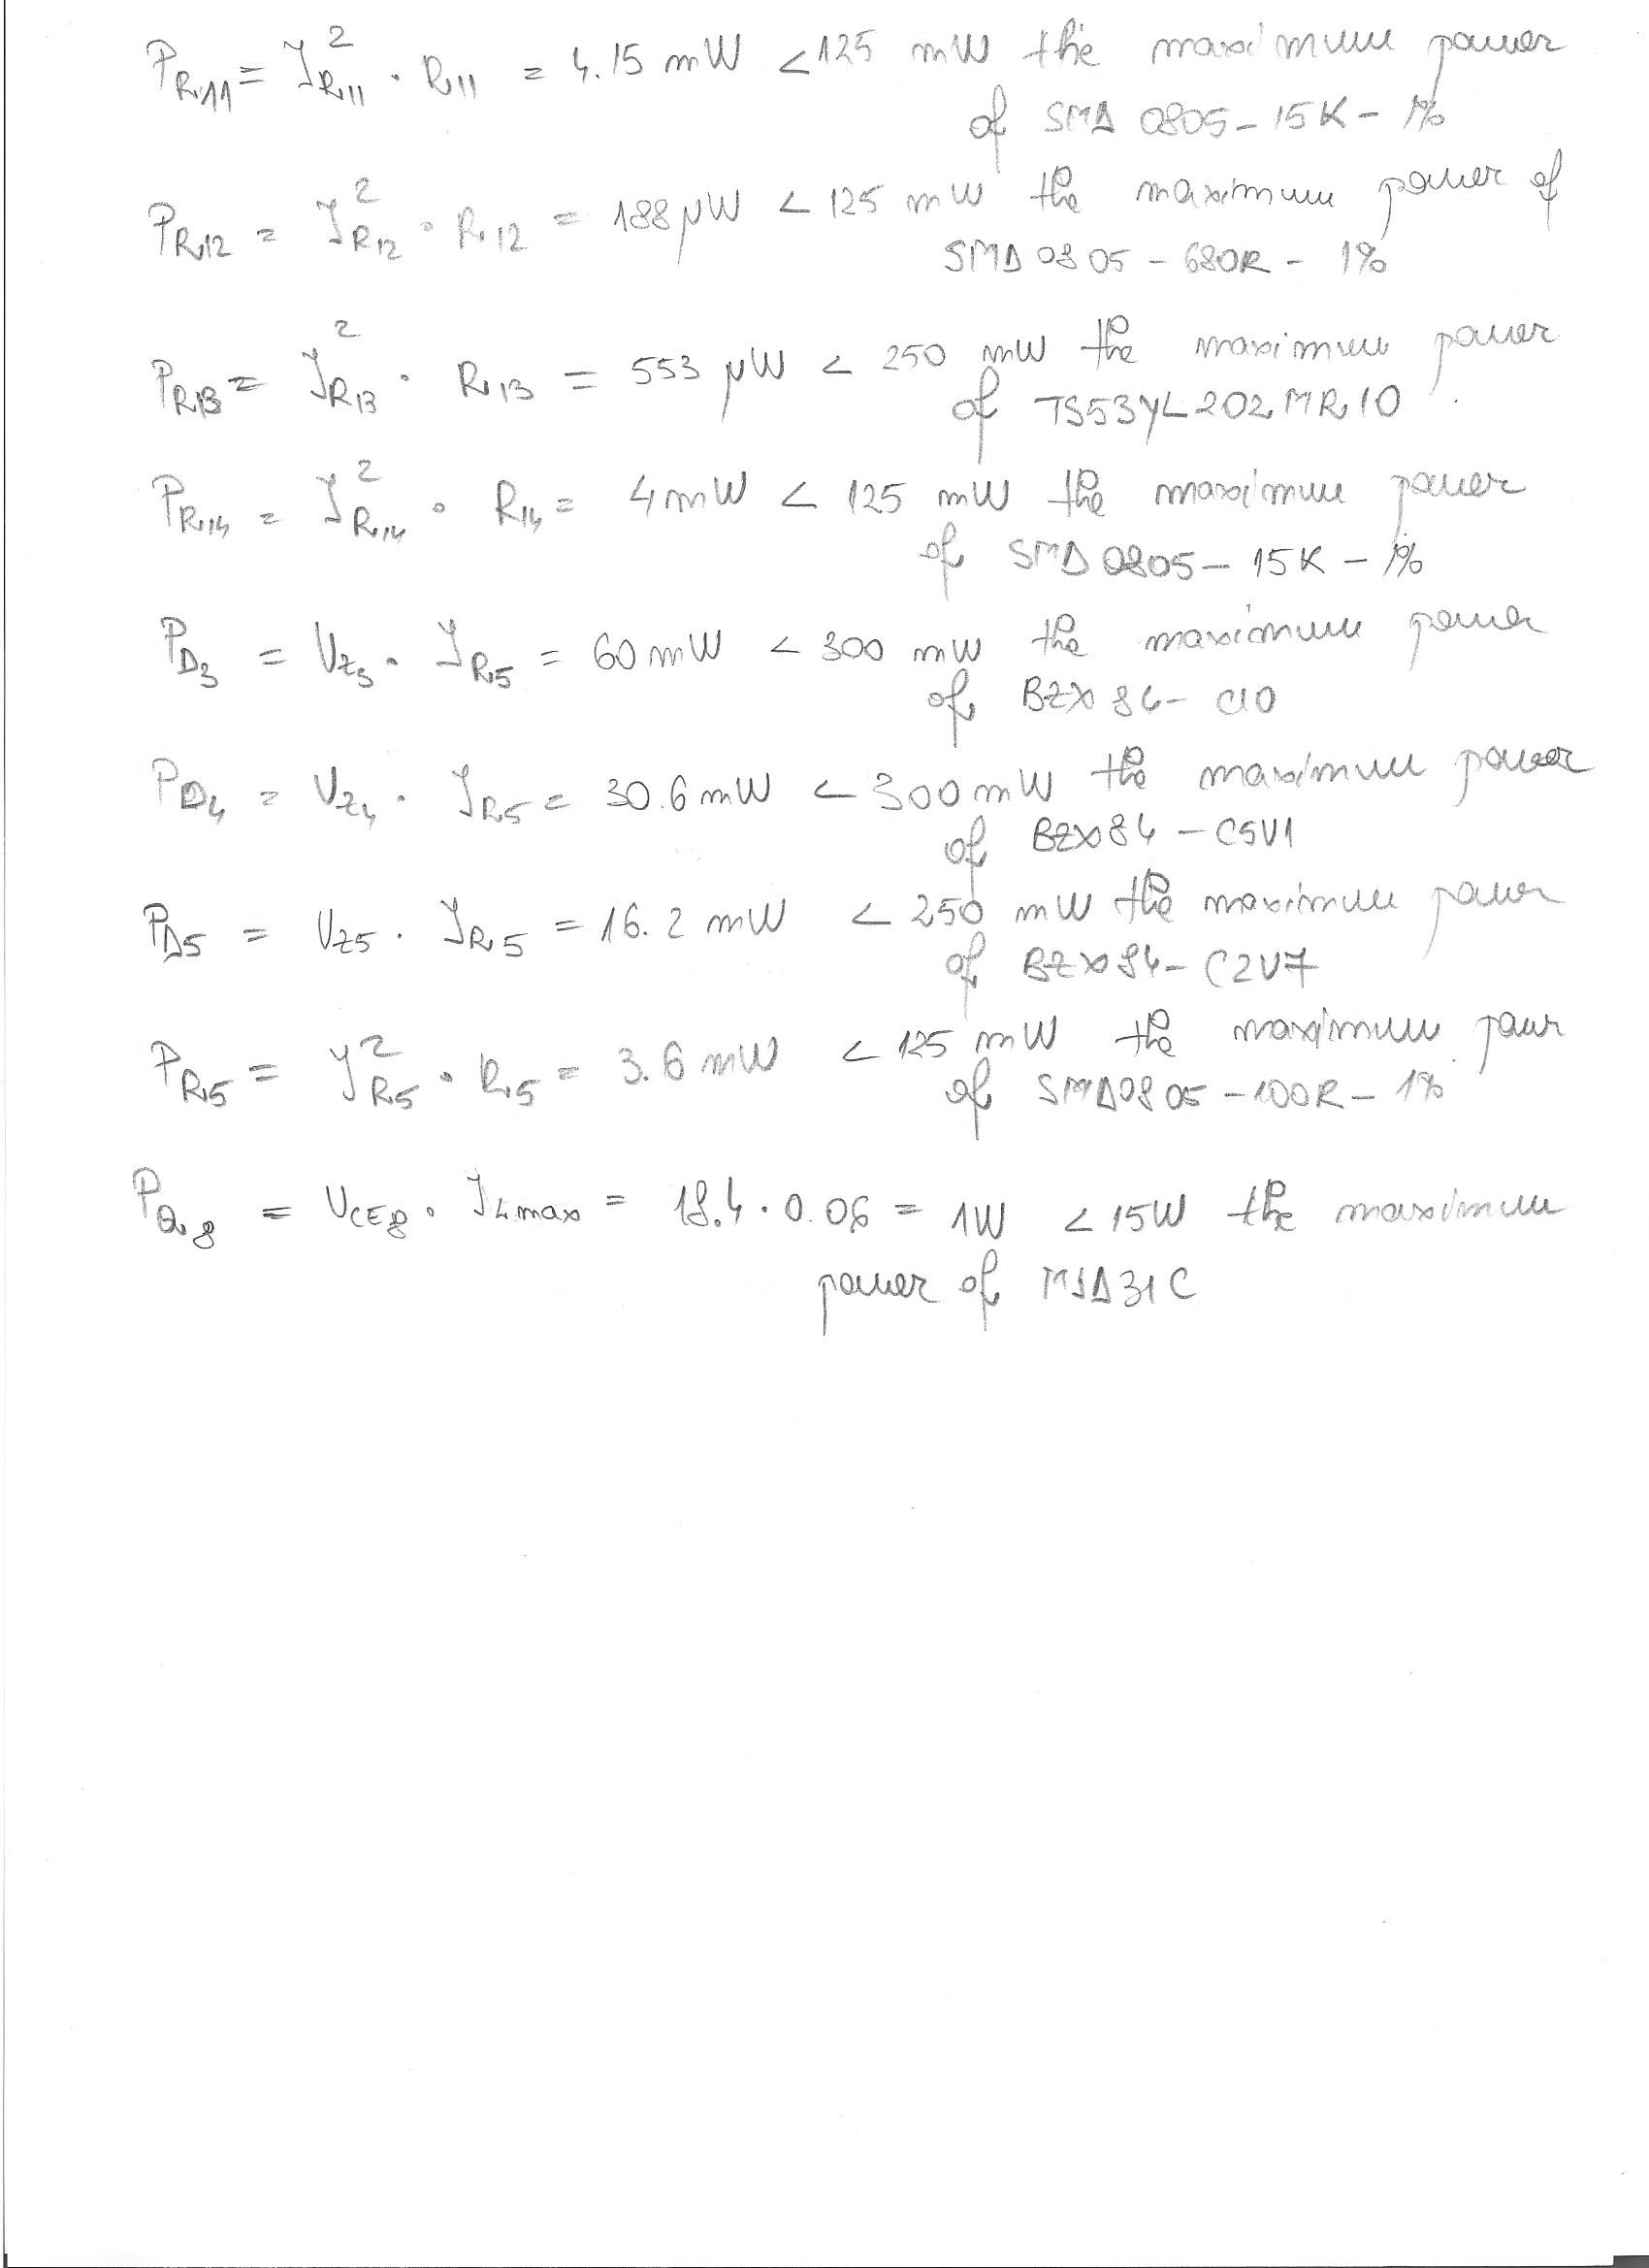 P_R11 = I²_R11 · R11 = 4.15 mW < 125 mW the maximum power
of SMD 0805 - 15K - 1%
P_R12 = I²_R12 · R12 = 188 μW < 125 mW the maximum power of
SMD 0805 - 680R - 1%
P_R13 = I²_R13 · R13 = 553 μW < 250 mW the maximum power
of TS53YL202MR10
P_R14 = I²_R14 · R14 = 4 mW < 125 mW the maximum power
of SMD 0805 - 15K - 1%
P_D3 = V_Z3 · I_R5 = 60 mW < 300 mW the maximum power
of BZX84 - C10
P_D4 = V_Z4 · I_R5 = 30.6 mW < 300 mW the maximum power
of BZX84 - C5V1
P_D5 = V_Z5 · I_R5 = 16.2 mW < 250 mW the maximum power
of BZX84 - C2V7
P_R5 = I²_R5 · R5 = 3.6 mW < 125 mW the maximum power
of SMD0805 - 100R - 1%
P_Q8 = V_CE8 · I_Lmax = 18.4 · 0.06 = 1W < 15W the maximum
power of MJD31C